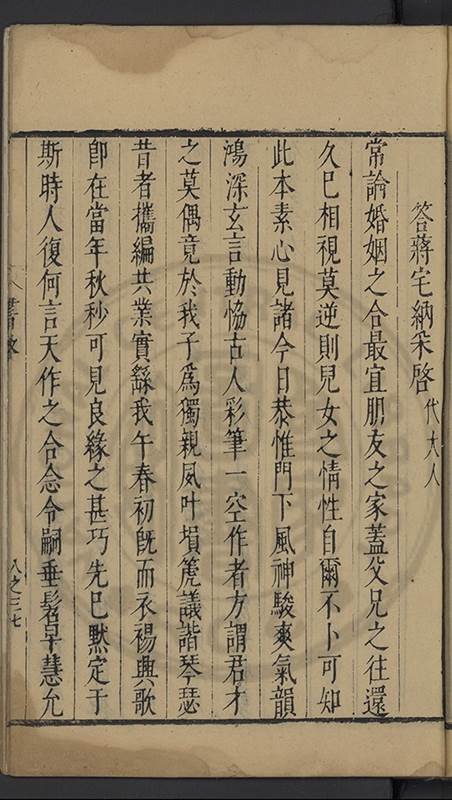 答蔣宅納采啓代大人
常論婚姻之合最宜朋友之家蓋父兄之往還
久已相視莫逆則兒女之情性自爾不卜可知
此本素心見諸今日恭惟門下風神駿爽氣韻
鴻深玄言動恊古人彩筆一空作者方謂君才
之莫偶竟於我子爲獨親夙叶塤篪議諧琴瑟
昔者攜編共業實繇我午春初旣而衣裼興歌
卽在當年秋秒可見良緣之甚巧先已默定于
斯時人復何言天作之合念令嗣垂髫早慧允
書啟
八之三七